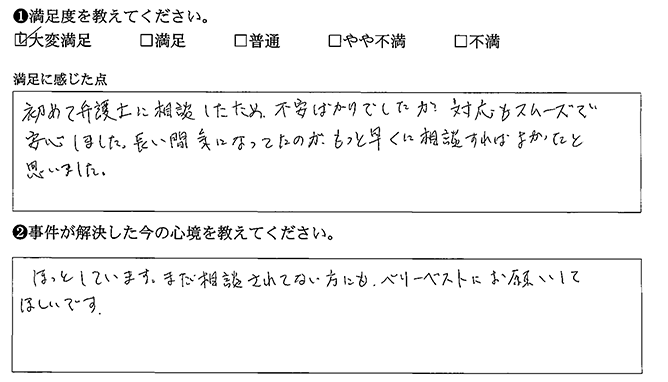 ❶満足度を教えてください。
☑大変満足 □満足 □普通 □やや不満 □不満
満足に感じた点
初めて弁護士に相談したため、不安ばかりでしたが、対応もスムーズで
安心しました。長い間気になってたのが、もっと早くに相談すればよかったと
思いました。
❷事件が解決した今の心境を教えてください。
ほっとしています。まだ相談されてない方にも、ベリーベストにお願いして
ほしいです。